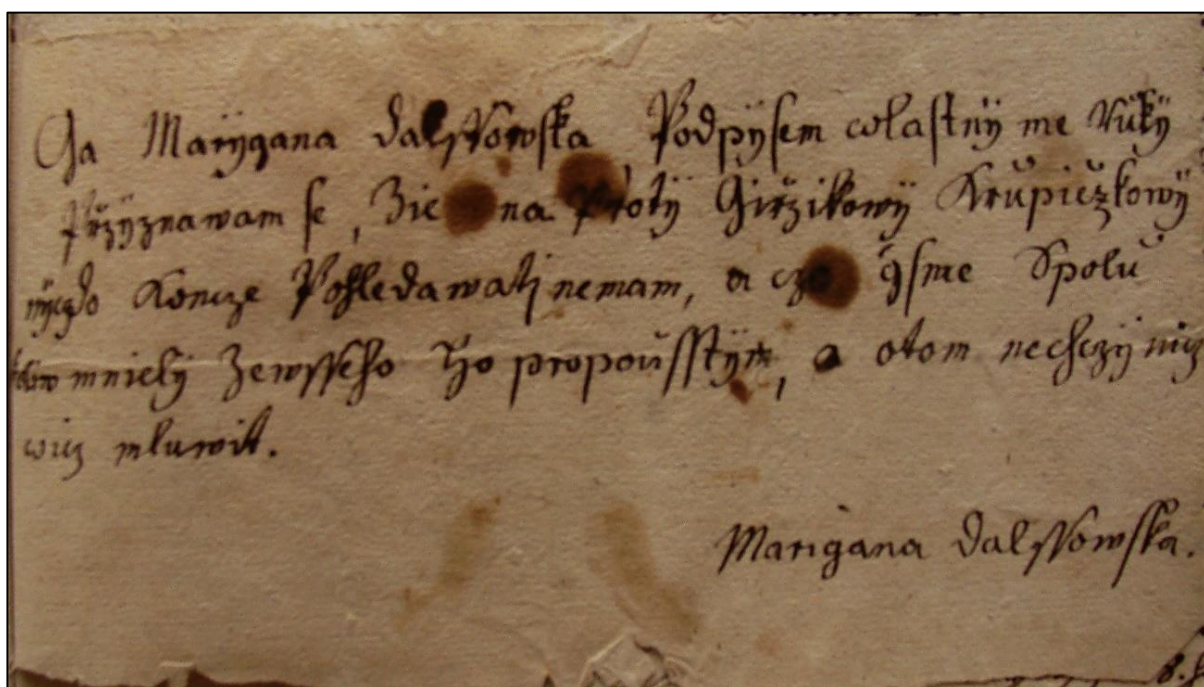 Ga Marÿgana dalssowska Podpÿsem wlastnÿ me Rukÿ
Przÿznawam se, Zie na Protÿ Girzikowÿ Krupiczkowÿ
Koncze Pohledawatj nemam, a czo gsme Spolu
mnielÿ Zewsseho Ho propausstÿm, a otom nechczÿ nicz
wicz mluwit.
Marigana dalssowska.